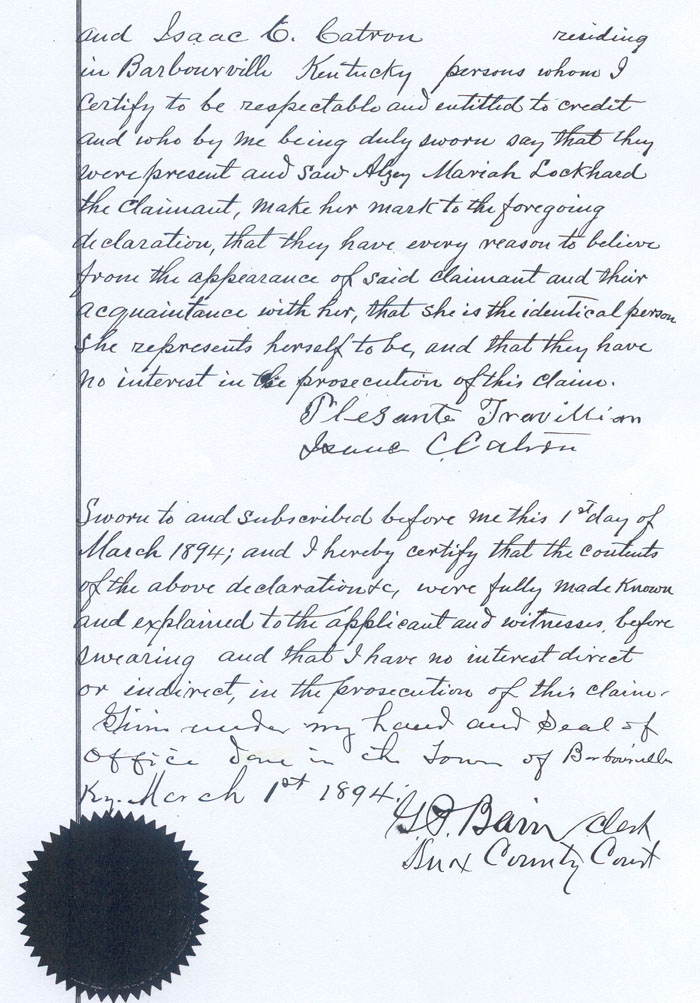 and Isaac C. Catron residing
in Barbourville Kentucky persons whom I
certify to be respectable and entitled to credit
and who by me being duly sworn say that they
were present and saw Alzey Mariah Lockhard
the Claimant, make her mark to the foregoing
declaration, that they have every reason to believe
from the appearance of said claimant and their
acquaintance with her, that she is the identical person
she represents herself to be, and that they have
no interest in the prosecution of this claim.
Plesante Travillian
Isaac C. Catron
Sworn to and subscribed before me this 1st day of
March 1894; and I hereby certify that the contents
of the above declaration &c, were fully made known
and explained to the applicant and witnesses, before
swearing and that I have no interest direct
or indirect, in the prosecution of this claim.
Given under my hand and Seal of
Office done in th Town of Barbourville
Ky. March 1st 1894.
Bain clerk
Knox County Court